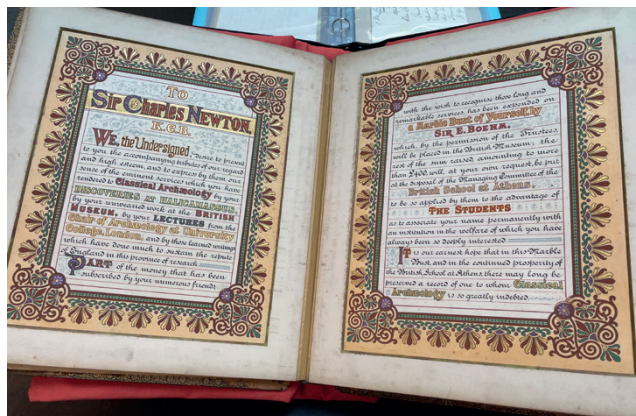 TO
Sir Charles NEWTON,
K.C.B.
WE, the Undersigned, desire to present
to you the accompanying tribute of our regard
and high esteem, and to express by them our
sense of the eminent services which you have
rendered to Classical Archæology by your
DISCOVERIES AT HALICARNASSUS,
by your unwearied work at the BRITISH
MUSEUM, by your LECTURES from the
Chair of Archæology at University
College, London, and by those learned writings
which have done much to sustain the repute
of England in this province of research.
PART of the money that has been
subscribed by your numerous friends
with the wish to recognise those long and
remarkable services, has been expended on
a Marble Bust of Yourself by
SIR E. BOEHM,
which, by the permission of the Trustees
will be placed in the British Museum; the
rest of the sum raised amounting to more
than £400, will, at your own request, be put
at the disposal of the Managing Committee of the
British School at Athens,
to be so applied by them to the advantage of
THE STUDENTS
as to associate your name permanently with
an institution in the welfare of which you have
always been so deeply interested.
IT is our earnest hope that in this Marble
Bust and in the continued prosperity of
the British School at Athens there may long be
preserved a record of one to whom Classical
Archæology is so greatly indebted.